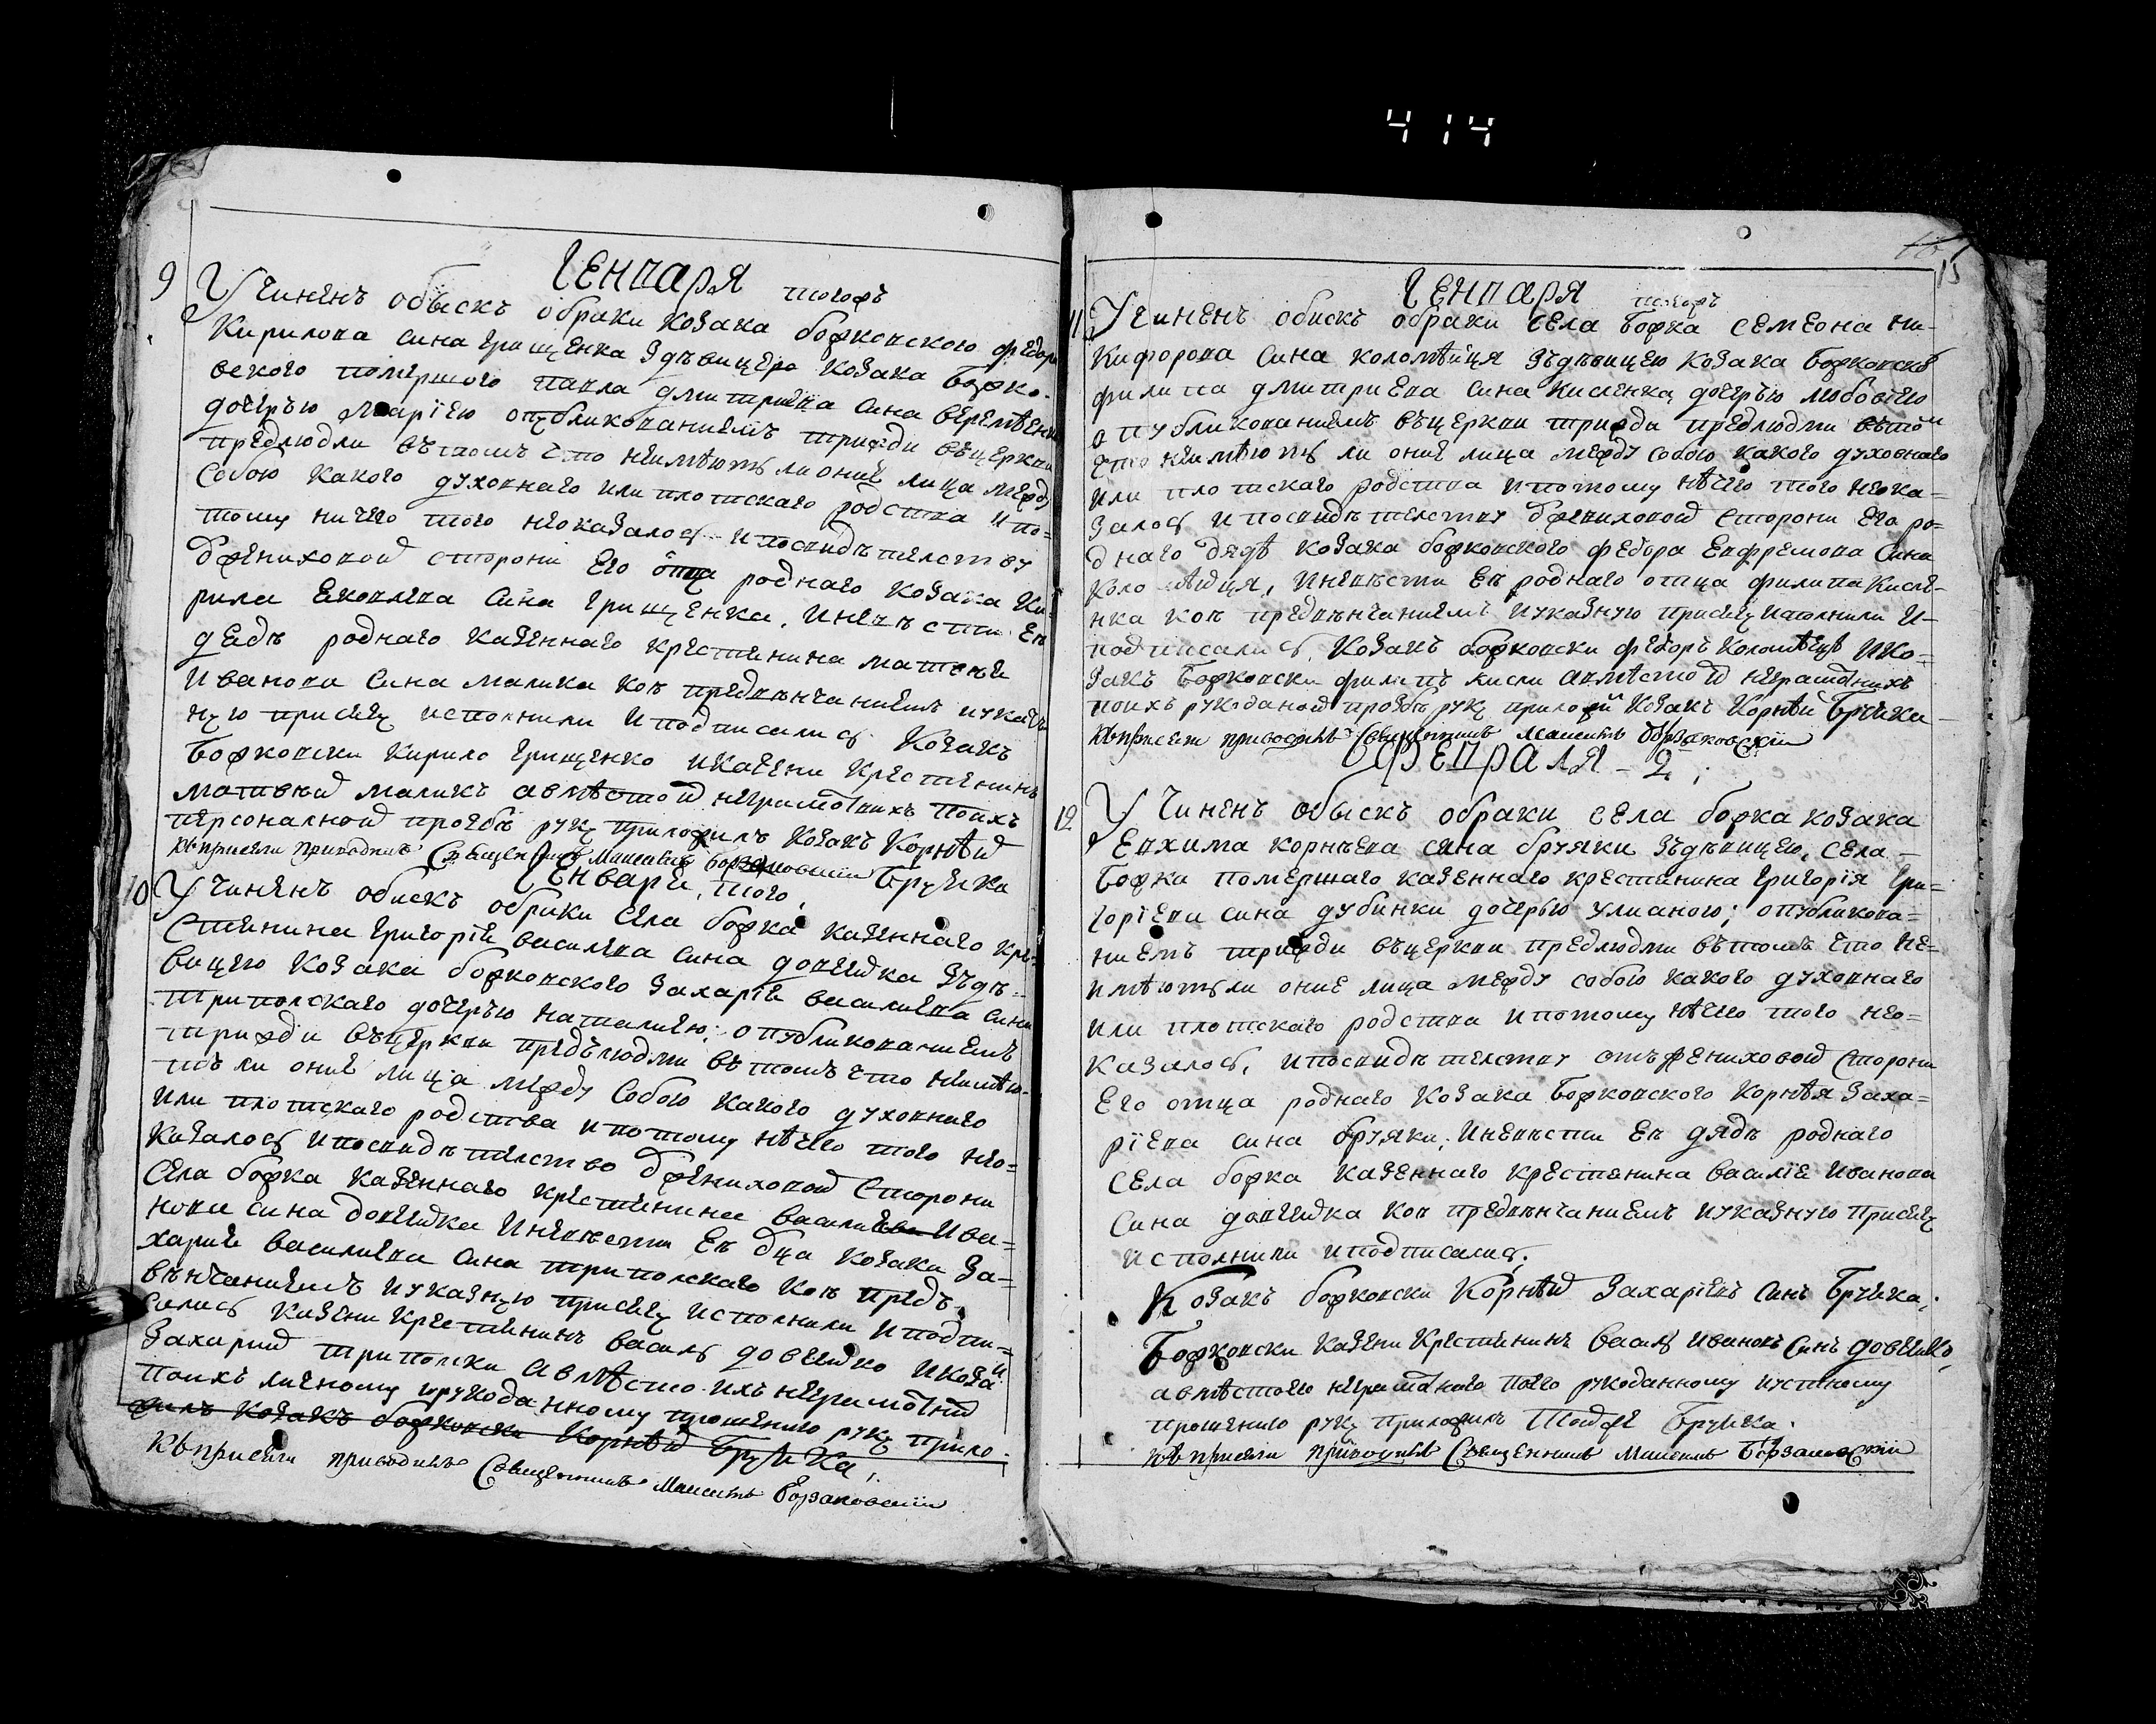 414
Генваря тогожъ
9 Учиненъ обыскъ обраки козака божковского федора
Кирилова сина Грищенка здѣвицею козака божко-
веского помершого павла дмитриева сина веремѣенка
дочерью Марiею опубликованиемъ трижди въцеркви
предлюдми втомъ что неимѣютъ ли оние лица между
собою какого духовнаго или плотскаго родства и по-
тому ничего того неоказалось ипосвидѣтелству
ѡженихової сторони его отца роднаго козака Ки-
рила Яковлева сина Грищенка, иневѣсти ея
дядѣ роднаго казенного крестянина матвѣя
Иванова сина малика кои предвѣнчаниемъ иуказ-
ную присягу исполнили иподписалис Козакъ
Божковски Кирило Грищенко иказени Крестянинъ
матвѣй маликъ авмѣсто й неграмотнихъ поихъ
персоналной прозбѣ руку приложилъ козакъ Корнѣй
Бруяка
Къприсяги приводилъ Священникъ Максимъ Борзаковскiй
Енваря, того
10 Учиненъ обискъ обраки села божка казенного кре-
стянина григорiя василева сина довгидка зъдѣ-
вицею козака божковского Захарiя василиева сина
триполскаго дочерью наталиею; опубликованиемъ
трижди въцеркви предълюдми втомъ что неимѣю-
тъ ли оние лица между собою какого духовного
или плотскаго родства ипотому нѣчего того нео-
казалось ипосвидѣтелство ѡжениховой сторони
села божка казенного крестянина василиева Ива-
нова сина довгидка иневѣсти ея ѡца козака За-
хария василиева сина триполскаго кои предъ
вѣнчаниемъ иуказную присягу исполнили иподпи-
салис казени крестянинъ василь довгидко икоза
Захарий триполски авмѣсто ихъ неграмотний
поихъ личному ирукоданному прошению руку прило-
жилъ козакъ божковски Корнѣй Бруяка;
Къприсяги приводилъ Священникъ Максимъ Борзаковскiй
15
Генваря тогожъ
11 Учиненъ обискъ обраки села Божка семеона ни-
кифорова сина коломѣйця зъдѣвицею козака божковско
филипа дмитриева сина кисленка дочерью любовiею
опубликованиемъ въцеркви трижди предлюдми втом
что неимѣютъ ли оние лица между собою какого духовнаго
или плотскаго родства ипотому нѣчего того неока-
залось ипосвидѣтелству ѡжениховой сторони его ро-
днаго дядѣ козака божковского федора Евфремова сина
коломѣйця, иневѣсти ея роднаго отца филипа кисле-
нка кои предвѣнчаниемъ иуказную присягу исполнили и-
подписалис, козакъ божковски федоръ коломѣецъ ико-
закъ Божковски филипъ кисли авмѣсто й неграмотнихъ
поихъ рукоданой прозбѣ руку приложи Козакъ Корнѣй Бруяка
Къприсяги приводилъ Священникъ Максимъ Борзаковскiй
Февраля - 2;
12 Учиненъ обыскъ обраки села божка козака
Евхима корнѣева сина бруяки зъдѣвицею, села
Божка помершаго казенного крестянина григорiя гри-
горiева сина дубинки дочерью улианою; опубликова-
ниемъ трижди въцеркви предлюдми втомъ что не-
имѣютъ ли оние лица между собою какого духовнаго
или плотскаго родства ипотому нѣчего того нео-
казалось, ипосвидѣтелству отъжениховой сторони
Его отца роднаго козака Божковского Корнѣя Заха-
рiева сина бруяки; иневѣсти ея дядѣ роднаго
Села божка казенного крестянина василiя Иванова
сина довгидка кои предвѣнчаниемъ иуказную присягу
исполнили иподписалис;
Козакъ божковски Корнѣй Захарiевъ синъ Бруяка;
Божковски казени крестянинъ василь ивановъ синъ довгидко,
авмѣсто его неграмотного поего рукоданному иустному
прошению руку приложилъ Тойже Бруяка.
Къ присяги приводилъ Священникъ Максимъ Борзаковскiй